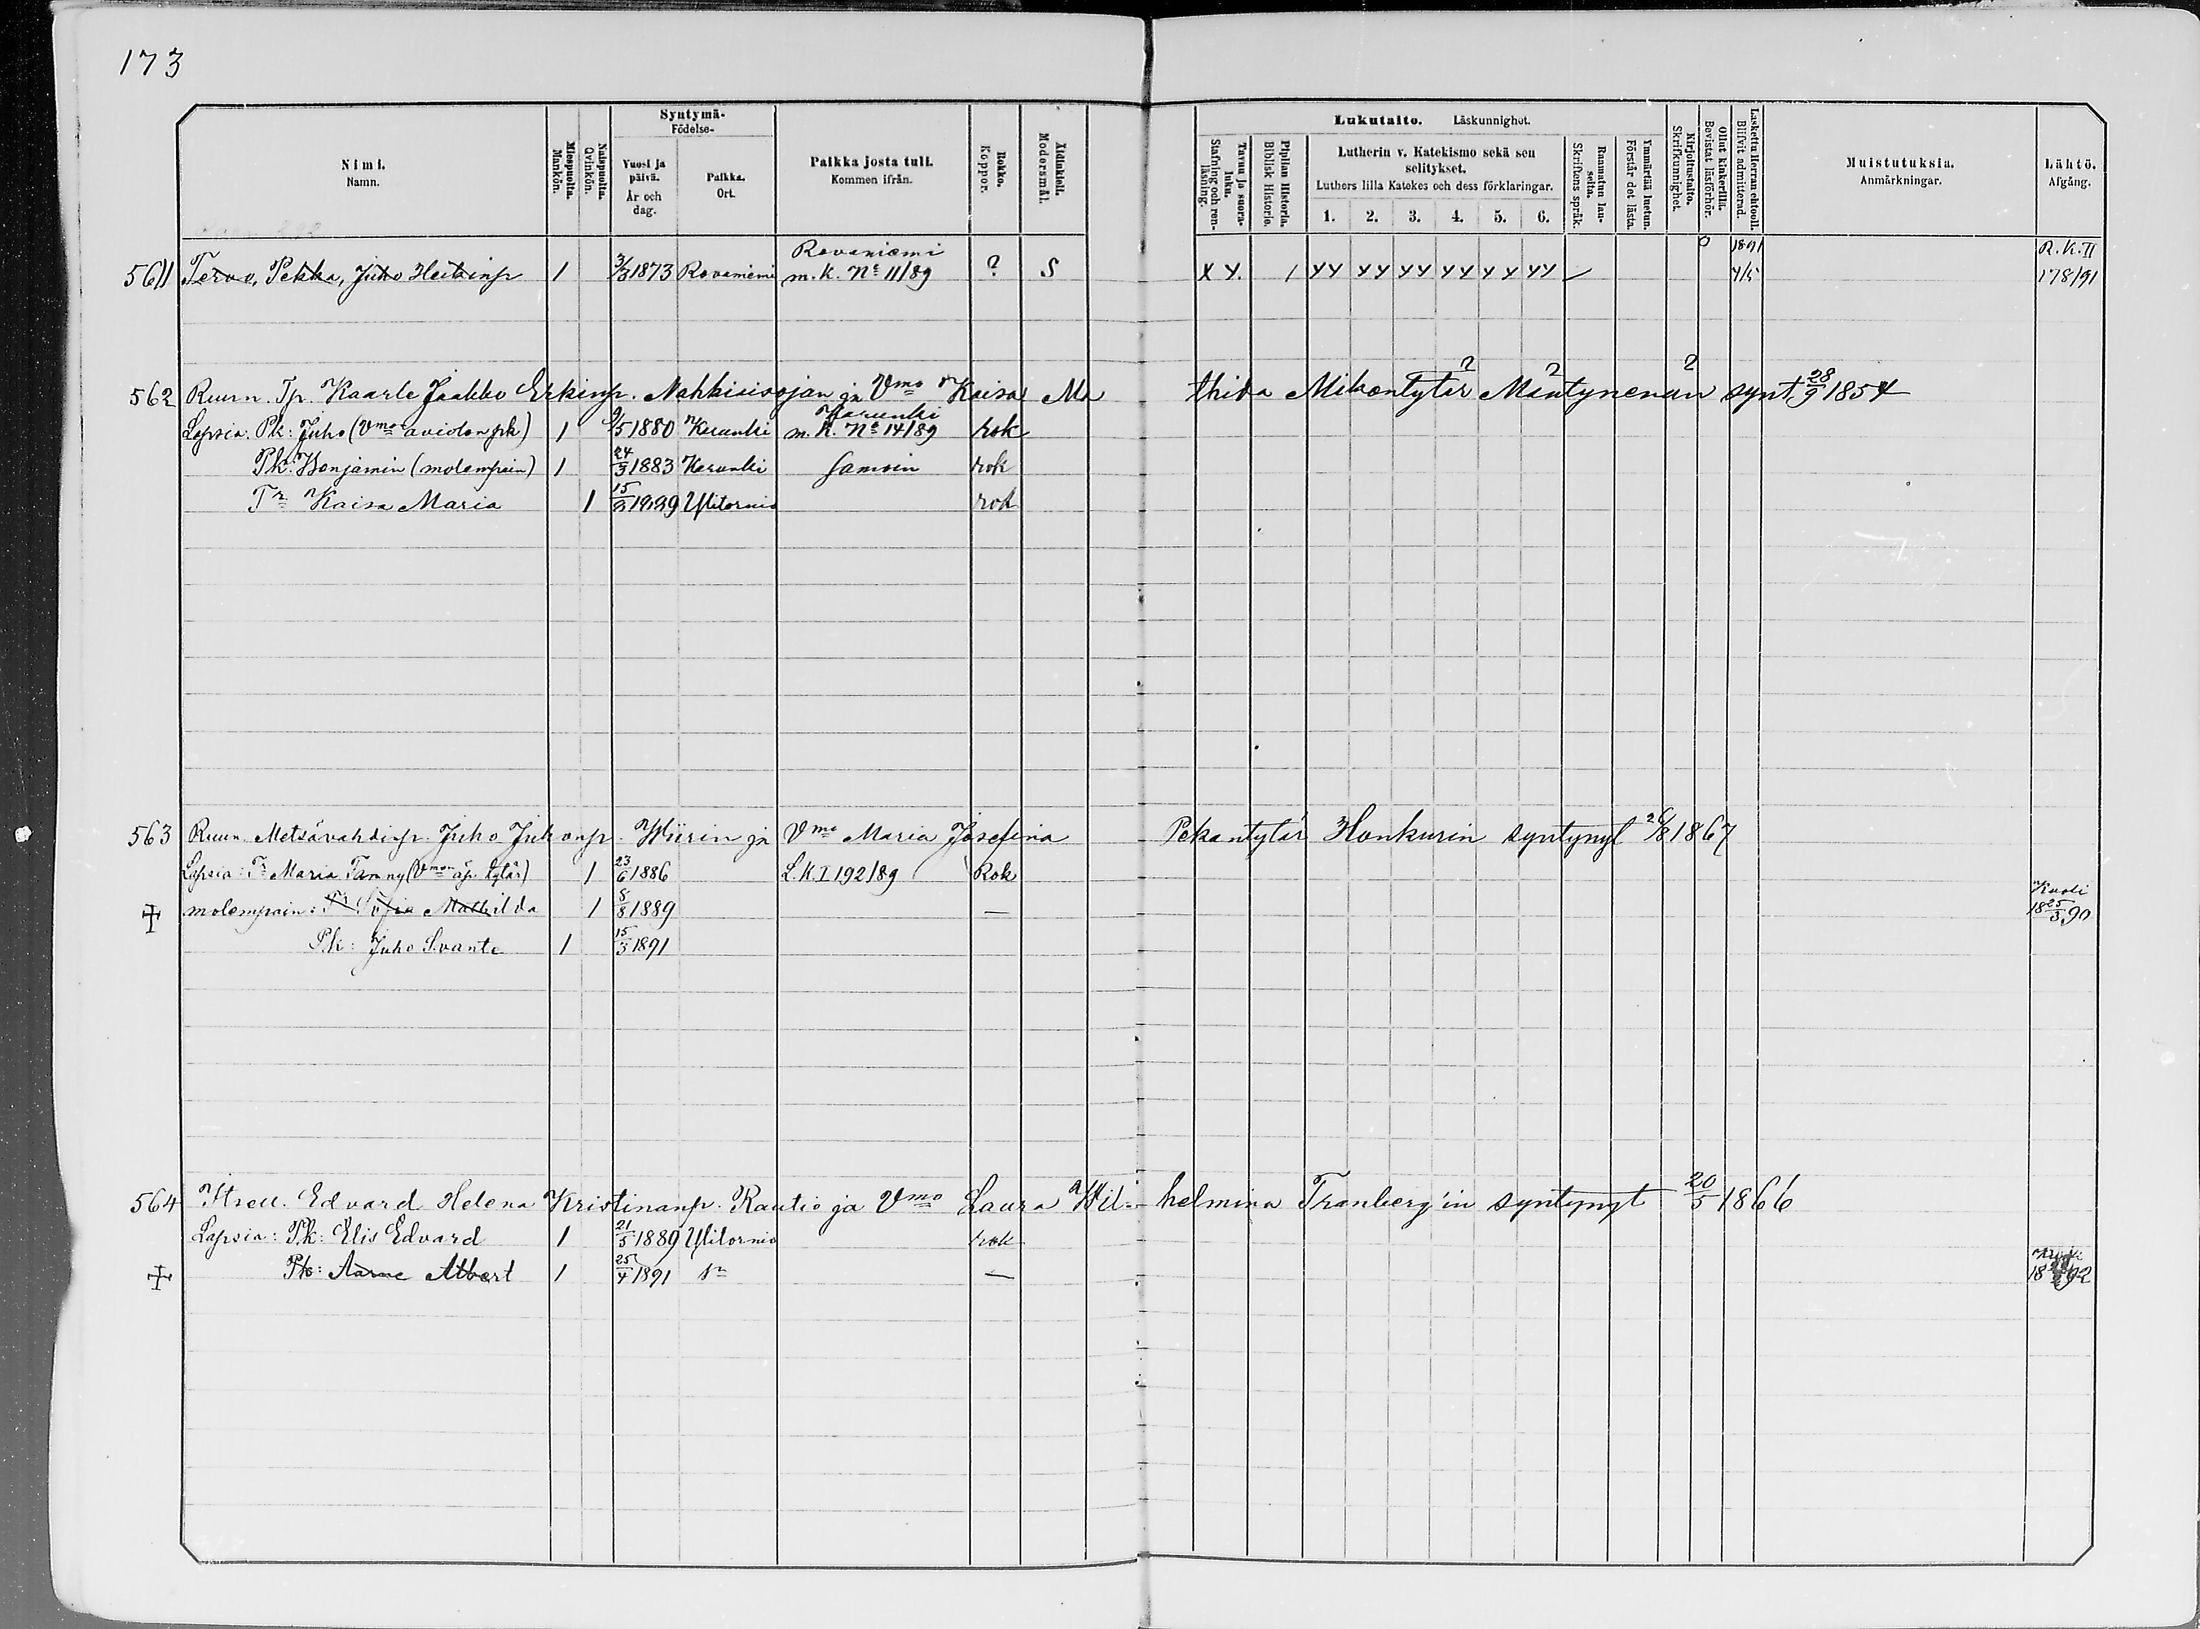 173
Nimi. Namn.
Miespuolta. Mankön.
Naispuolta. Qvinkön.
Syntymä- Födelse-
Vuosi ja päivä. År och dag.
Paikka. Ort.
Paikka josta tuli. Kommen ifrån.
Rokko. Koppor.
Äidinkieli. Modersmål.
Lukutaito. Läskunnighet.
Tavuu ja suoraluku. Stafning och renläsning.
Piplian Historia. Biblisk Historie.
Lutherin v. Katekismo sekä sen selitykset.
Luthers lilla Katekes och dess förklaringar.
1. 2. 3. 4. 5. 6.
Raamatun lauseita. Skriftens språk.
Ymmärtää luetun. Förstår det lästa.
Kirjoitustaito. Skrifkunnighet.
Ollut kinkerillä. Bevistat läsförhör.
Laskettu Herran ehtooll. Blifvit admitterad.
Muistutuksia. Anmärkningar.
Lähtö. Afgång.
Rovaniemi 0 1891 R. K. II
561 Tervo, Pekka, Juho Heikinp 1 3/3 1873 Rovaniemi m. k. No 11/89 ? S X Y. 1 YY YY YY YY YY YY 4/5 178/91
? ? ?
562 Ruun. Tp. Kaarle Jaakko Erkinp. Nahkiaisojan ja Vmo Kaisa Ma thida Mikontytär Mäntynenän synt. 28/9 1854
Karunki
Lapsia: Pk: Juho (Vmon avioton pk) 1 9/5 1880 Karunki m. K. No 14/89 rok
Pk: Benjamin (molempain) 1 24/3 1883 Karunki samoin rok
Tr Kaisa Maria 1 15/2 1889 Ylitornio rok
563 Ruun. Metsävahdinp. Juho Juhonp. Wiirin ja Vmo Maria Josefina Pekantytär Honkurin syntynyt 26/8 1867
Lapsia: Tr Maria Fanny (Vmon äp. tytär) 1 23/6 1886 L. K. I 192/89 Rok
Kuoli
molempain: Tr Sofia Mathilda 1 8/8 1889 — 18 25/3 90
Pk: Juho Svante 1 15/3 1891
564 Itsell. Edvard Helena Kristinanp. Rautio ja Vmo Laura Wil- helmina Tranberg'in syntynyt 20/5 1866
Lapsia: Pk: Elis Edvard 1 21/5 1889 Ylitornio rok
Pk: Aarne Albert 1 25/4 1891 —